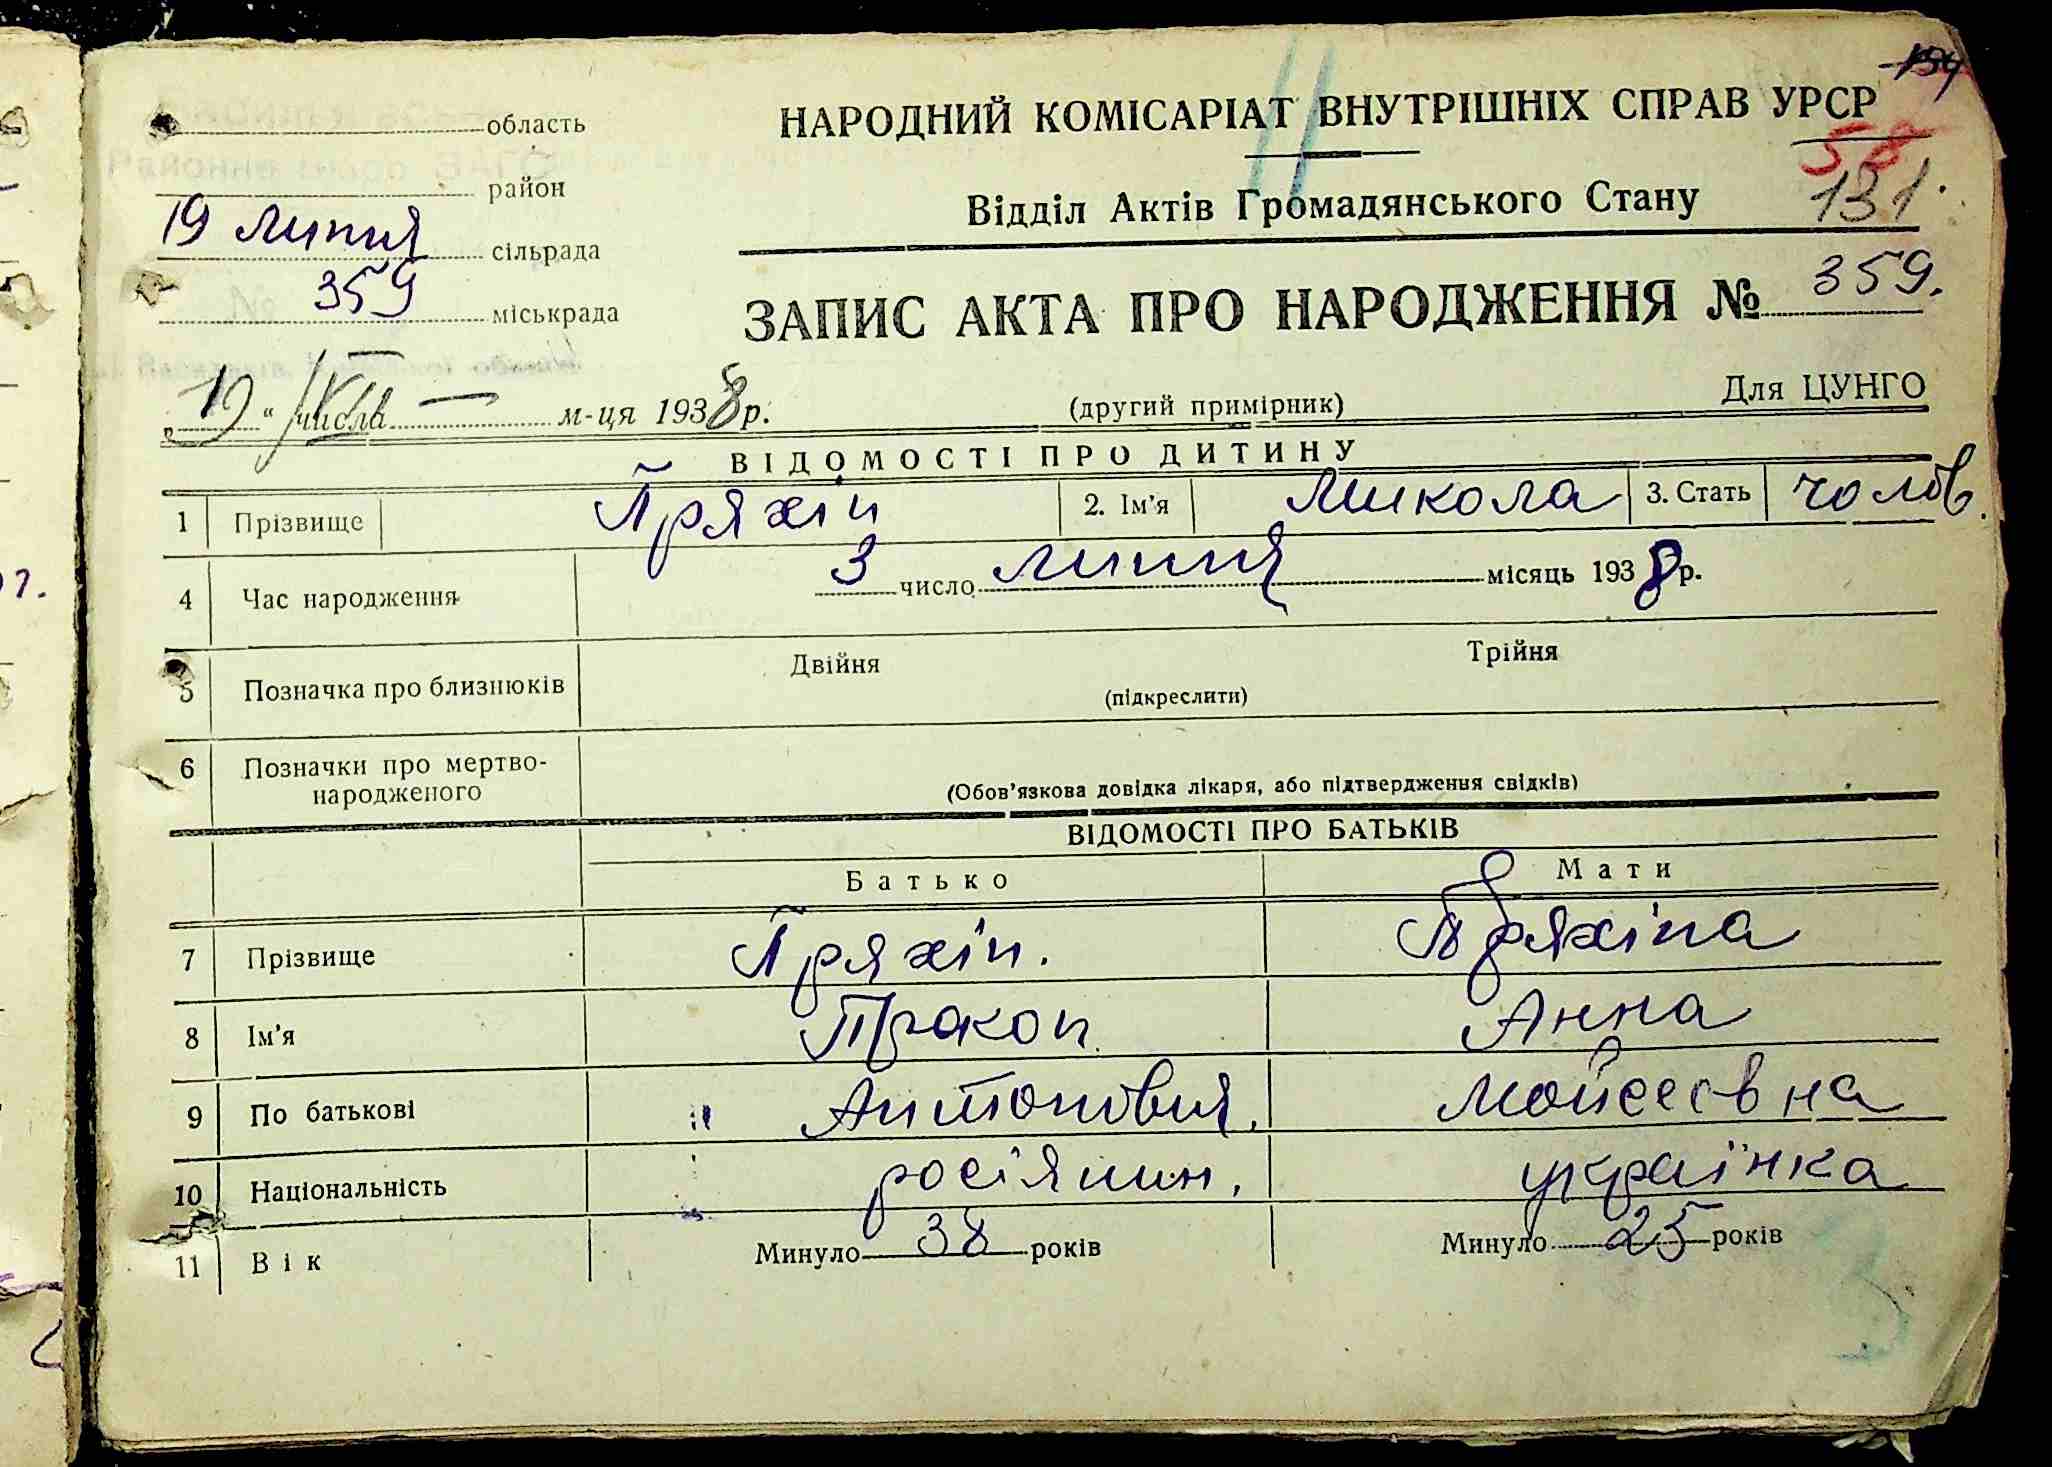 154
НАРОДНИЙ КОМІСАРІАТ ВНУТРІШНІХ СПРАВ УРСР
58
область
район
Відділ Актів Громадянського Стану
131.
19 липня
сільрада
359
міськрада
ЗАПИС АКТА ПРО НАРОДЖЕННЯ № 359.
„19“ числа VII — м-ця 1938 р.
(другий примірник)
Для ЦУНГО
ВІДОМОСТІ ПРО ДИТИНУ
1 Прізвище Пряхін 2. Ім'я Микола 3. Стать чолов.
4 Час народження 3 число липня місяць 1938 р.
5 Позначка про близнюків Двійня Трійня
(підкреслити)
6 Позначки про мертво-
народженого
(Обов'язкова довідка лікаря, або підтвердження свідків)
ВІДОМОСТІ ПРО БАТЬКІВ
Батько Мати
7 Прізвище Пряхін. Пряхіна
8 Ім'я Прокоп Анна
9 По батькові Антонович. Мойсеєвна
10 Національність росіянин. українка
11 Вік Минуло 38 років Минуло 25 років
3